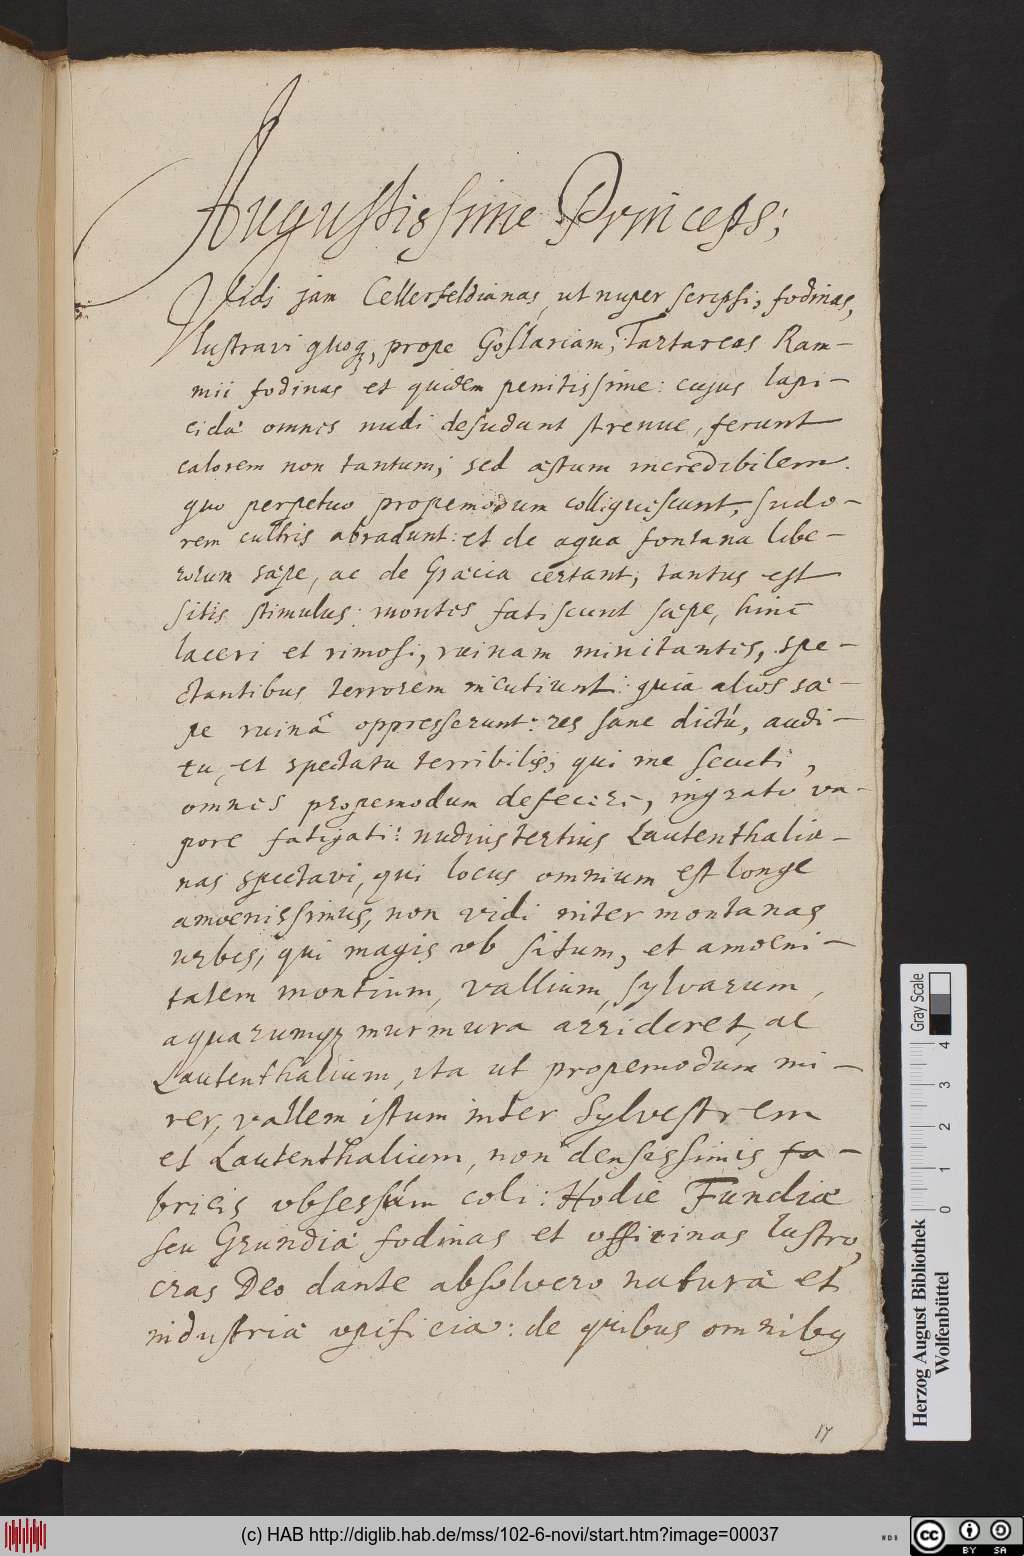 Augustissime Princeps;
Vidi jam Cellerfeldianas, ut nuper scripsi, fodinas,
lustravi quoq, prope Goslariam, Tartareas Ram-
mii fodinas et quidem penitissime: cujus lapi-
cidæ omnes nudi desudant strenue, ferunt
calorem non tantum; sed æstum incredibilem.
quo perpetuo propemodum colliquescunt, sudo-
rem cultris abradunt: et de aqua fontana libe-
rorum sæpe, ac de Græcia certant; tantus est
sitis stimulus: montes fatiscunt sæpe, hinc
laceri et rimosi, ruinam minitantes, spe-
ctantibus terrorem incutiunt: quia alios sæ-
pe ruinâ oppresserunt: res sane dictu, audi-
tu, et spectatu terribilis; qui me secuti,
omnes propemodum defeceri, ingrato va-
pore fatigati: nudiustertius Lautenthalia-
nas spectavi, qui locus omnium est longe
amoenissimus, non vidi inter montanas
urbes; qui magis ob situm, et amoeni-
tatem montium, vallium, sylvarum,
aquarumq murmura arrideret, ac
Lautenthalium, ita ut propemodum mi-
rer, vallem istam inter Sylvestrem
et Lautenthalium, non densissimis fa-
bricis obsessam coli: Hodie Fundiæ
seu Grundiæ fodinas et officinas lustro,
cras Deo dante absolvero naturæ et
industriæ opificia: de quibus omnibq
17
Herzog August Bibliothek
Wolfenbüttel
Gray Scale
0 1 2 3 4
(c) HAB http://diglib.hab.de/mss/102-6-novi/start.htm?image=00037
WDB
cc BY SA